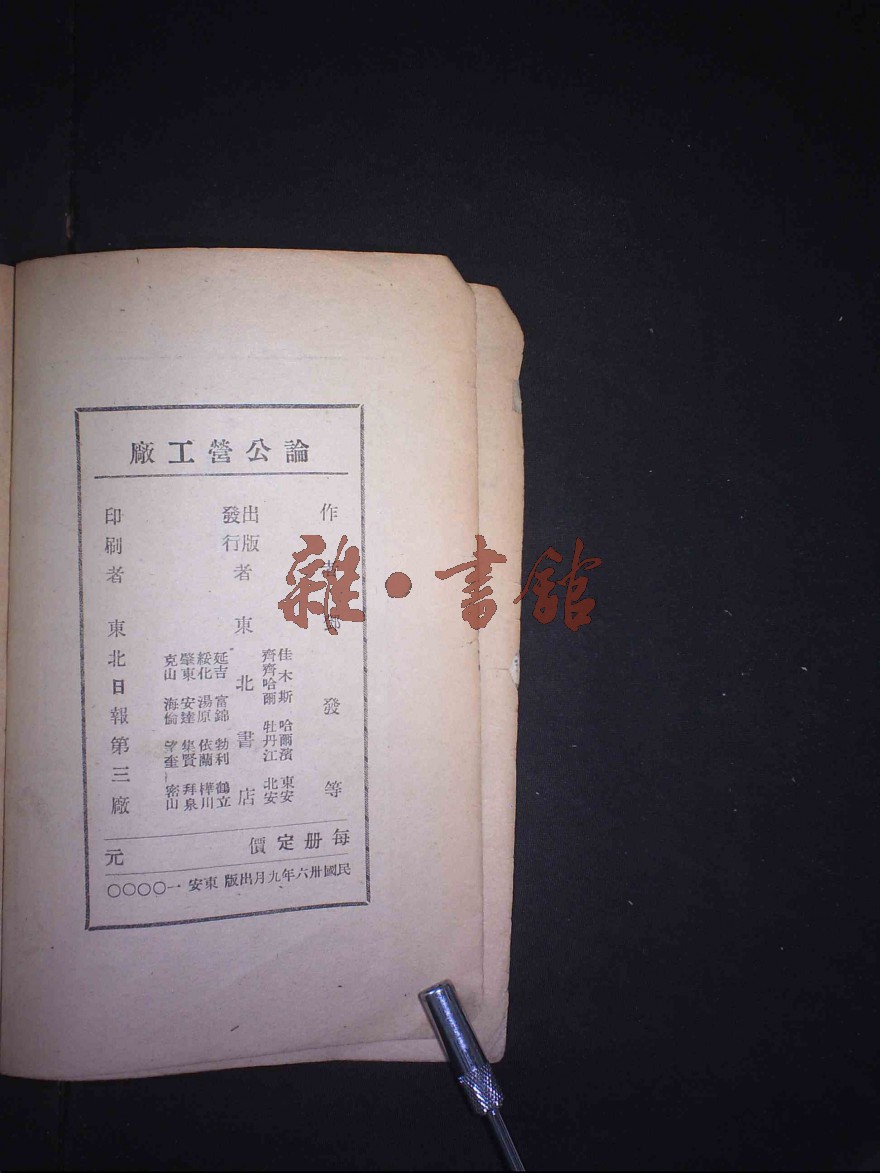 論公營工廠
作者 鄧發等
出版
發行
者 東北書店
佳木斯 哈爾濱 東安
齊齊哈爾 牡丹江 北安
延吉 富錦 勃利 鶴立
綏化 湯原 依蘭 樺川
肇東 安達 集賢 拜泉
克山 海倫 望奎 密山
印刷者 東北日報第三廠
每册定價 元
民國卅六年九月出版 東安 一〇〇〇〇
雜·書館